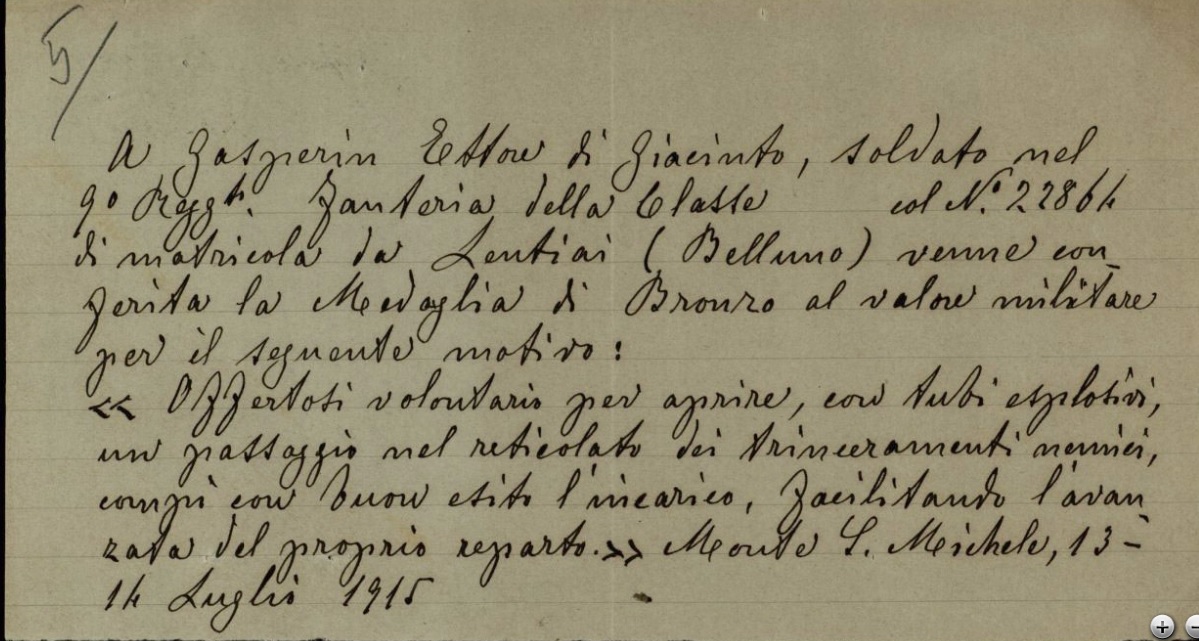 5/
A Gasperin Ettore di Giacinto, soldato nel
9º Reggto. Fanteria della Classe col Nº. 22864
di matricola da Lentiai (Belluno) venne con-
ferita la Medaglia di Bronzo al valore militare
per il seguente motivo:
<< Offertosi volontario per aprire, con tubi esplosivi,
un passaggio nel reticolato dei trinceramenti nemici,
compì con buon esito l'incarico, facilitando l'avan
zata del proprio reparto.>> Monte S. Michele, 13-
14 Luglio 1915